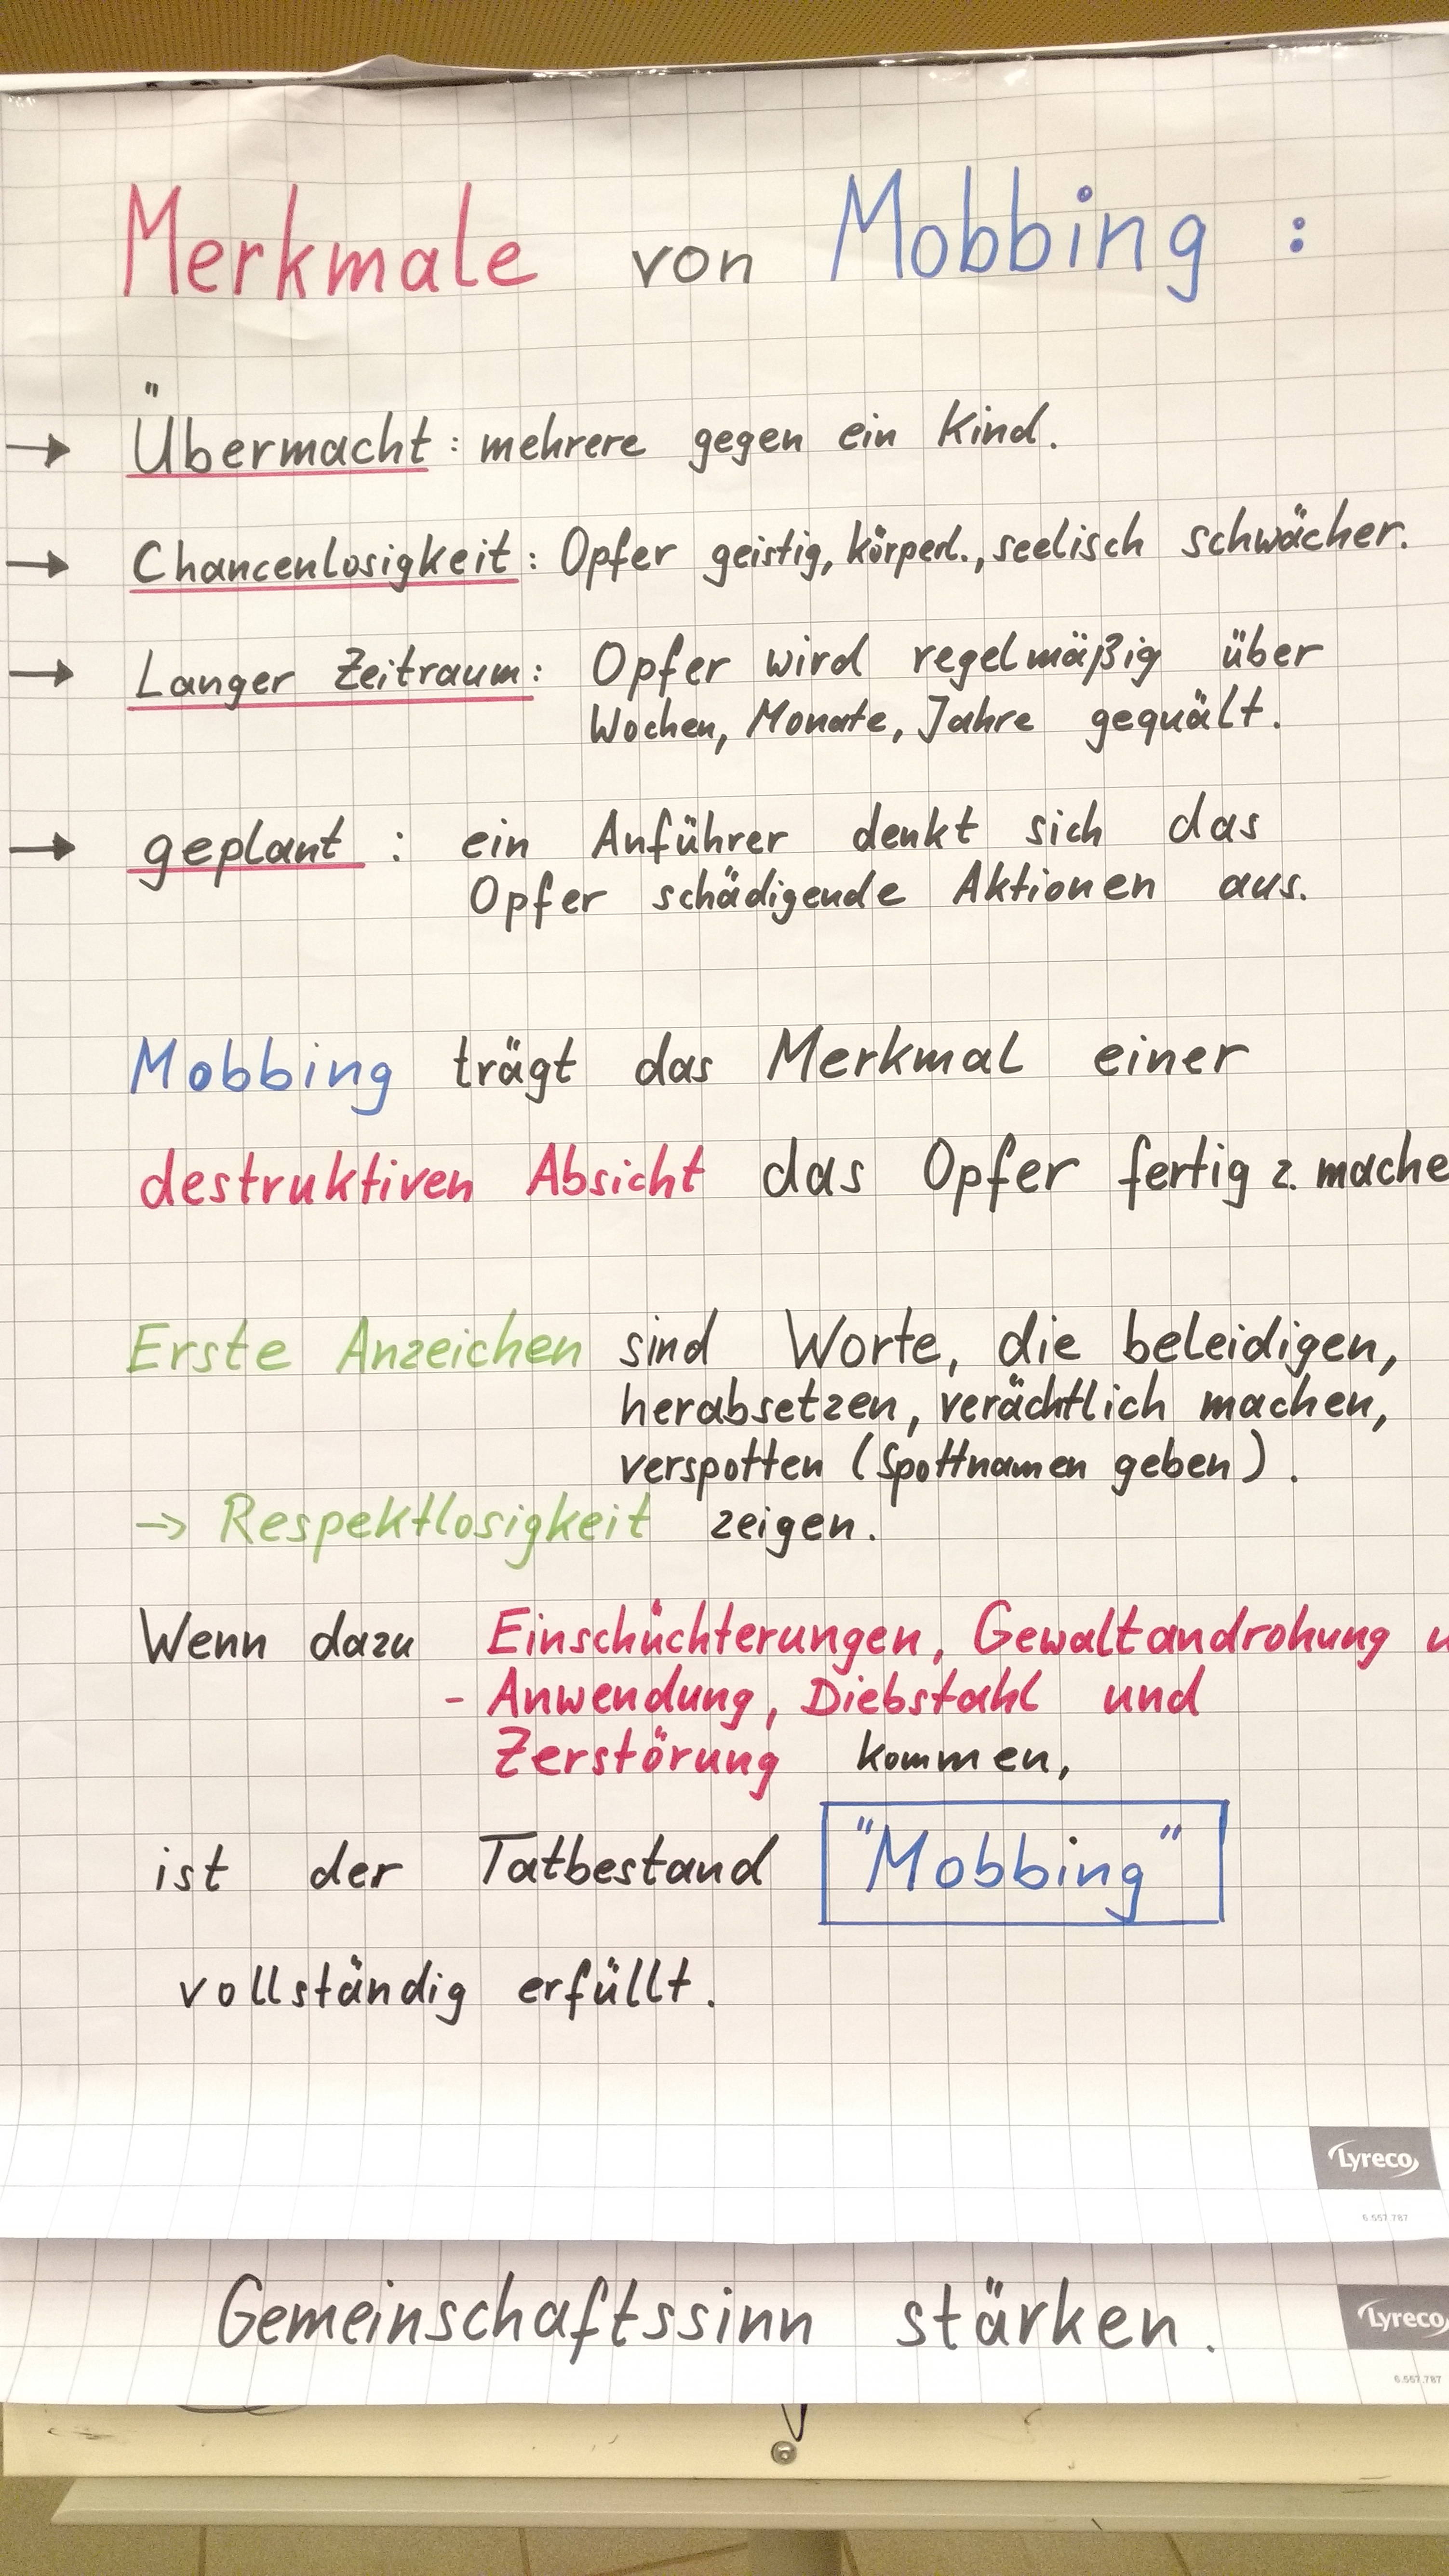 Merkmale von Mobbing :
→ Übermacht : mehrere gegen ein Kind.
→ Chancenlosigkeit : Opfer geistig, körperl., seelisch schwächer.
→ Langer Zeitraum : Opfer wird regelmäßig über
Wochen, Monate, Jahre gequält.
→ geplant : ein Anführer denkt sich das
Opfer schädigende Aktionen aus.
Mobbing trägt das Merkmal einer
destruktiven Absicht das Opfer fertig z. mache
Erste Anzeichen sind Worte, die beleidigen,
herabsetzen, verächtlich machen,
verspotten (Spottnamen geben).
→ Respektlosigkeit zeigen.
Wenn dazu Einschüchterungen, Gewaltandrohung u
- Anwendung, Diebstahl und
Zerstörung kommen,
ist der Tatbestand "Mobbing"
vollständig erfüllt.
Lyreco
6.557.787
Gemeinschaftssinn stärken.
Lyreco
6.557.787